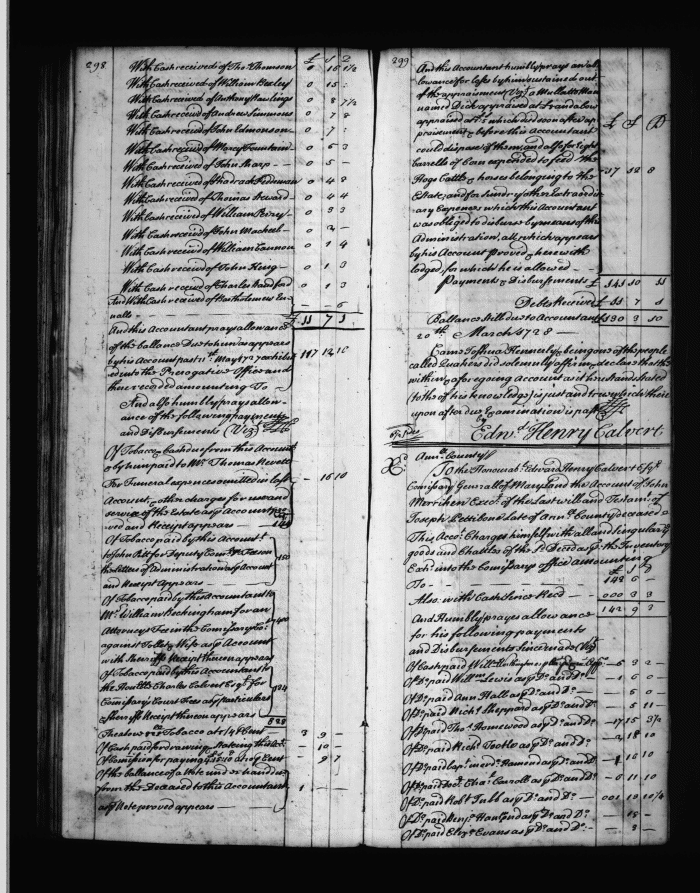 298
£ s d
With Cash received of Tho.s Thomson 0 15 1½
With Cash received of William Bexley 0 15 :
With Cash received of Anthony Rawlings 0 8 7½
With Cash received of Andrew Simmons 0 7 8
With Cash received of John Edmonson 0 7 :
With Cash received of Marcy Fountain 0 6 3
With Cash received of John Sharp 0 5 -
With Cash received of Shadrack 0 4 8
With Cash received of Thomas Steward 0 4 4
With Cash received of William Perry 0 3 3
With Cash received of John 0 2 -
With Cash received of William Cannon 0 1 4
With Cash received of John King 0 1 3
With Cash received of Charles 0 1 3
And With Cash received of Bartholemew
- - 6
£ 11 7 3
And this Accountant prays allowance
of the ballance Due to him as appears
by his Account past 11th May 1727 exhibit
ed into the Prerogative Office and 117 12 10
there recorded amounting To
And also humbly prays allow
ance of the following payments
and Disbursments (Viz.t)
Of Tobacco Cash due from this Account
by him paid to Mr. Thomas Nevett
For Funeral expences omitted in last - 16 10
Account, other charges for use and
service of the Estate as p Account pro
ved and Receipt appears
Of Tobacco paid by this Account.t
to John Pitt for Deputy Com.rys Fees on
the letters of Administration as p Account 150
and Receipt Appears
Of Tobacco paid by this Accountant to
Mr. William Beckingham for an
Attorneys Fee in the Comissary Co.
against & Wife as p Account
with Sheriffs Receipt thereon appears
Of Tobacco paid by this Accountant to
the Honble Charles Calvert Esq.r for 124
Comissary Court Fees as p particulars
& Sheriffs Receipt thereon appears
828
The above 828 Tobacco at p Cent 3 9 -
Of Cash paid for drawing & stating this Acc.t - 10 -
Of Comission for paying p Cent - 9 7
Of the ballance of a Note under hand due
from the Deceased to this Accountant 1 - -
as p Note proved appears
299
And this Accountant humbly prays an al
lowance for loss by him sustained out
of the appraisment (Viz.t) a Mullatto Man
named Dick appraised at & an old Cow
appraised at which died soon after ap
praisement & before this Accountant £ s D
could dispose of them, and also for Eight
Barrells of Corn expended to feed the
Hogs Cattle & horses belonging to the 37 18 8
Estate, and for sundry other Extraordin
ary Expences which this Accountant
was obliged to disburse by means of the
Administration, all which appears
by his Account Proved, herewith
lodged, for which he is allowed
Payments & Disbursments £ 141 10 11
Debts Received £ 11 7 1
Ballance still due to Accountant £ 130 3 10
20th March 1728
Came Joshua Kennerly being one of the people
called Quakers did solemnly affirm & declare that the
within & foregoing Account as it here stands stated
(to the best of his knowledge) is just and true which there
upon after due Examination is past
by
Edw.d Henry Calvert
Ann.a County
To the Honourab.le Edward Henry Calvert Esq.r
Comissary Generall of Maryland the Account of John
Merriken Exec.r of the last will and Testam.t of
Joseph Pettibone late of Ann.a County deceased
This Acco.t Charges himself with all and singular the
goods and Chattles of the s.d Deced as p the Inventory
Exhib.d into the Comissarys office amounting
£ s d
To 142 6 -
Also with Cash since Rec.d 000 3 3
142 9 3
And Humbly prays allowance
for his following payments
and Disbursments Since made (Viz.t)
Of Cash paid Will.m 6 3 2
Of D.o paid Will.m Lewis as p D.o and D.o - 1 6 0
Of D.o paid Ann Hall as p D.o and D.o - 6 0
Of D.o paid Rich.d Sheppard as p D.o and D.o - 5 11
Of D.o paid Tho.s Homewood as p D.o and D.o - 17 15 3½
Of D.o paid Rich.d Tootle as p D.o and D.o - 2 18 10
Of D.o paid as p D.o and D.o - 1 16 10
Of D.o paid Cha.s Carroll as p D.o and D.o - 0 11 10
Of D.o paid Rob.t Jubb as p D.o and D.o 001 19 10¼
Of D.o paid Benj.a as p D.o and D.o - 18 -
Of D.o paid Eliz.a Evans as p D.o and D.o - 9 -